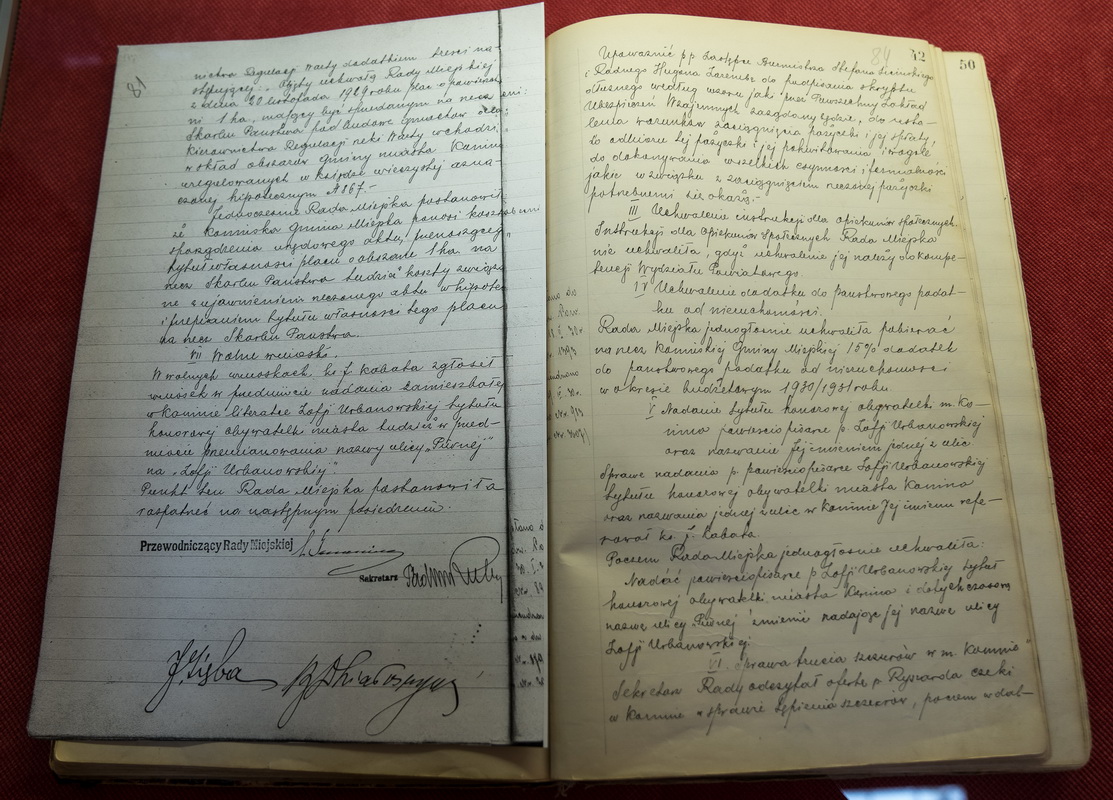 81
nictwa Regulacji Warty dodatkiem treści na-
stępującej: uchwałą Rady Miejskiej
z dnia 20 listopada 1929 roku plac o powierz
ni 1 ha, mający być sprzedanym na rzecz
Skarbu Państwa pod budowę gmachów dla
kierownictwa Regulacji rzeki Warty wchodzi
w skład obszarów Gminy miasta Konina
uregulowanych w księdze wieczystej ozna-
czonej hipotecznym № 867.-
Jednocześnie Rada Miejska postanowiła
że Konińska Gmina Miejska ponosi koszta
sporządzenia urzędowego aktu, przenoszącego
tytuł własności placu o obszarze 1 ha na
rzecz Skarbu Państwa tudzież koszty związa
ne z ujawnieniem rzeczonego aktu w hipotece
i przepisaniem tytułu własności tego placu
na rzecz Skarbu Państwa.
VII Wolne wnioski.
W wolnych wnioskach ks. J. Kabata zgłosił
wniosek w przedmiocie nadania zamieszkałej
w Koninie literatce Zofji Urbanowskiej tytułu
honorowej obywatelki miasta tudzież w przed-
miocie przemianowania nazwy ulicy „Piernej"
na „Zofji Urbanowskiej"
Punkt ten Rada Miejska postanowiła
rozpatrzeć na następnym posiedzeniu.
Przewodniczący Rady Miejskiej
Sekretarz
84
42
50
Upoważnić pp. Zastępcę Burmistrza Stefana
i Radnego Hugona do podpisania skryptu
dłużnego według wzoru jaki przez Powszechny Zakład
Ubezpieczeń Wzajemnych zażądany będzie, do usta-
lenia warunków zaciągnięcia pożyczki i jej spłaty,
do odbioru tej pożyczki i jej pokwitowania i wogóle
do dokonywania wszelkich czynności i formalności
jakie w związku z zaciągnięciem niniejszej pożyczki
potrzebnemi się okażą.-
III Uchwalenie instrukcji dla opiekunów społecznych.
Instrukcji dla opiekunów społecznych Rada Miejska
nie uchwaliła, gdyż uchwalenie jej należy do kompe-
tencji Wydziału Powiatowego.
IV Uchwalenie dodatku do państwowego podat-
ku od nieruchomości.
Rada Miejska jednogłośnie uchwaliła pobierać
na rzecz Konińskiej Gminy Miejskiej 15% dodatek
do państwowego podatku od nieruchomości
w okresie budżetowym 1930/1931 roku
V Nadanie tytułu honorowej obywatelki m. Ko-
nina powieściopisarce p. Zofji Urbanowskiej
oraz nazwanie Jej imieniem jednej z ulic.
Sprawę nadania p. powieściopisarce Zofji Urbanowskiej
tytułu honorowej obywatelki miasta Konina
oraz nazwania jednej z ulic w Koninie Jej imieniem refe-
rował ks. J. Kabata.
Poczem Rada Miejska jednogłośnie uchwaliła:
Nadać powieściopisarce p. Zofji Urbanowskiej tytuł
honorowej obywatelki miasta Konina i dotychczasową
nazwę ulicy „Piernej" zmienić nadając jej nazwę ulicy
Zofji Urbanowskiej.
VI. Sprawa trucia szczurów w m. Koninie
Sekretarz Rady odczytał ofertę p. Ryszarda
w Koninie w sprawie tępienia szczurów, poczem w dal-